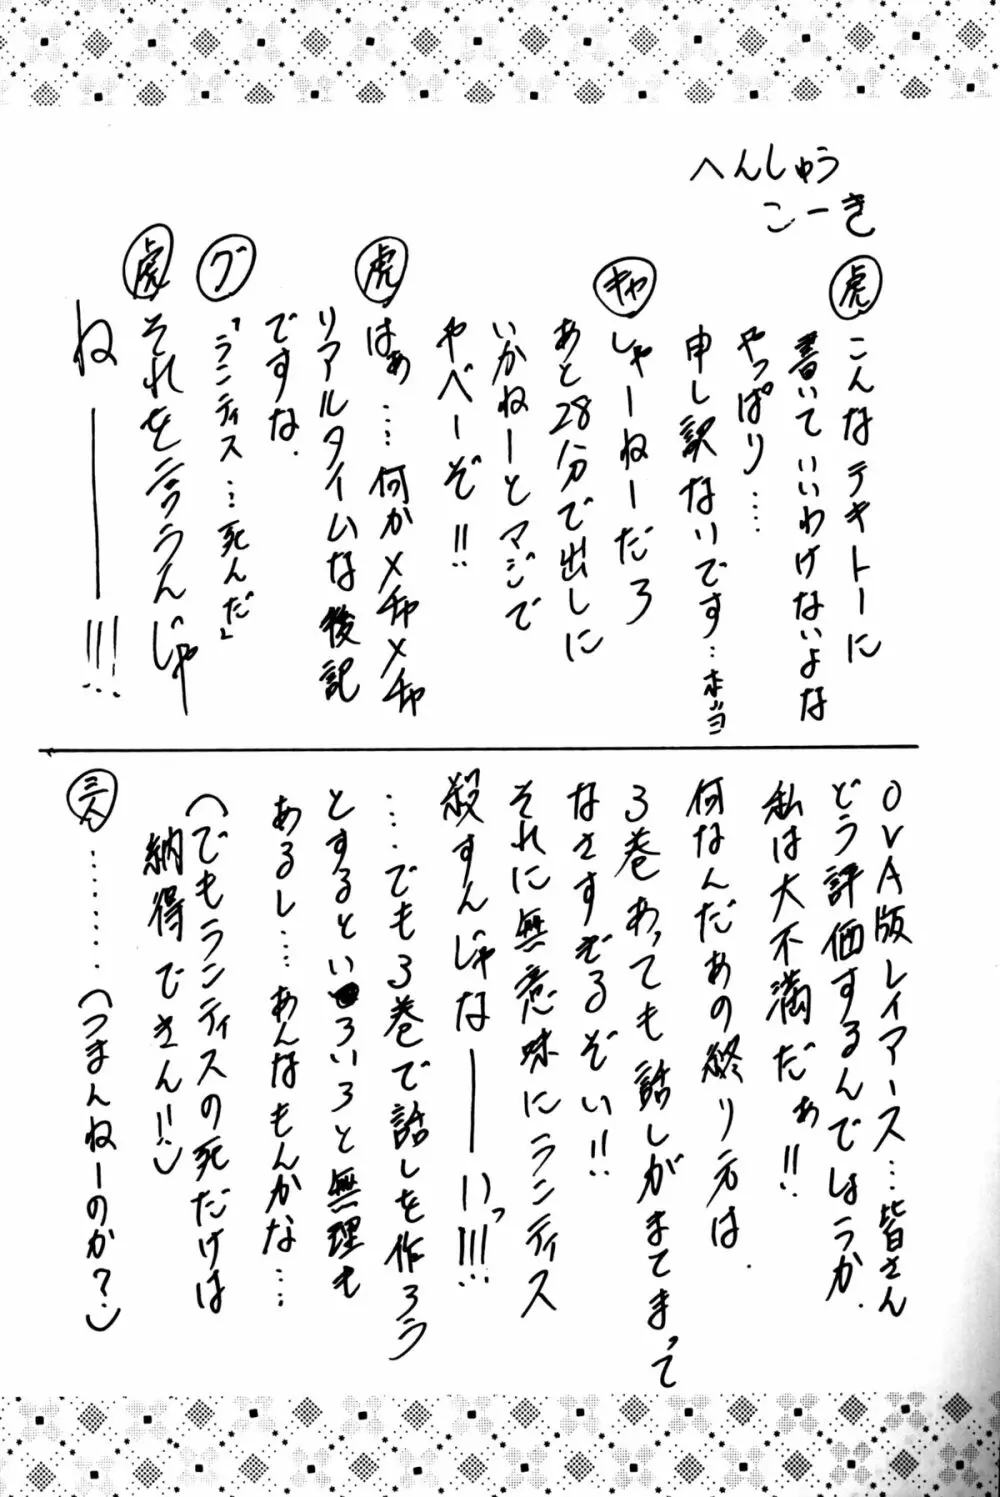 へんしゅう
こーき
虎 こんなテキトーに
書いていいわけないよな
やっぱり…
申し訳ないです…本当
キャ しゃーねーだろ
あと28分で出しに
いかねーとマジで
やべーぞ!!
虎 はぁ…何かメチャメチャ
リアルタイムな後記
ですな.
グ 「ランティス…死んだ」
虎 それを言うんじゃ
ね――!!!
OVA版レイアース…皆さん
どう評価するんでしょうか.
私は大不満だぁ!!
何なんだあの終り方は.
3巻あっても話しがまてまって
なさすぎるぞい!!
それに無意味にランティス
殺すんじゃな――いっ!!!
…でも3巻で話しを作ろう
とするといろいろと無理も
あるし…あんなもんかな…
(でもランティスの死だけは
納得できん!!)
三人 ………(つまんねーのか?)